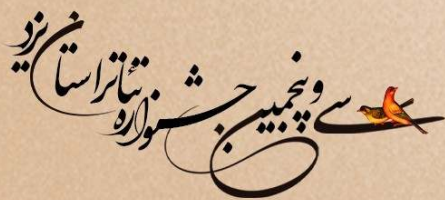 سی و پنجمین جشنواره تئاتر استان یزد